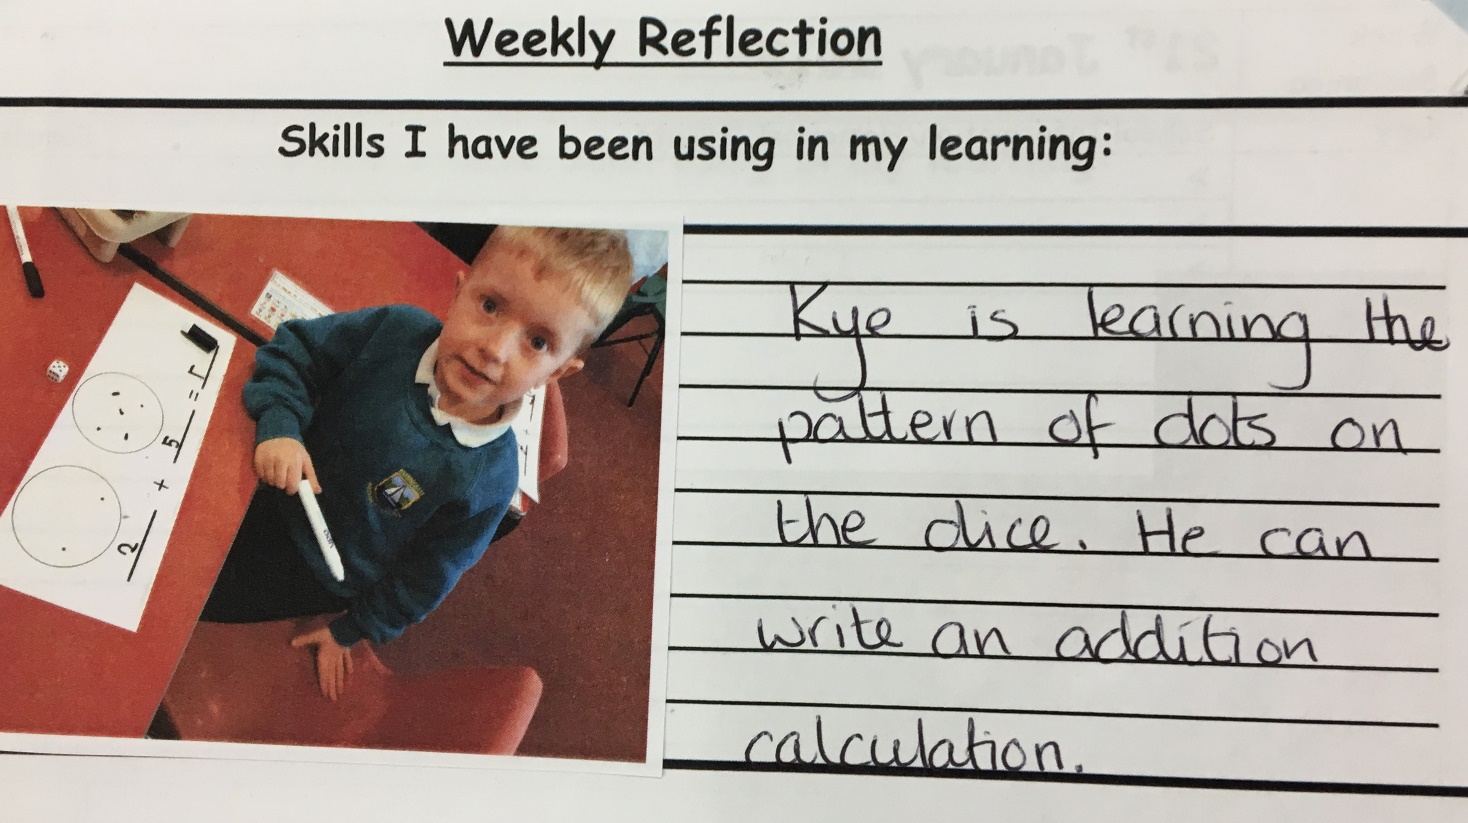 Weekly Reflection
Skills I have been using in my learning:
Kye is learning the
pattern of dots on
the dice. He can
write an addition
calculation.
2 + 5 =